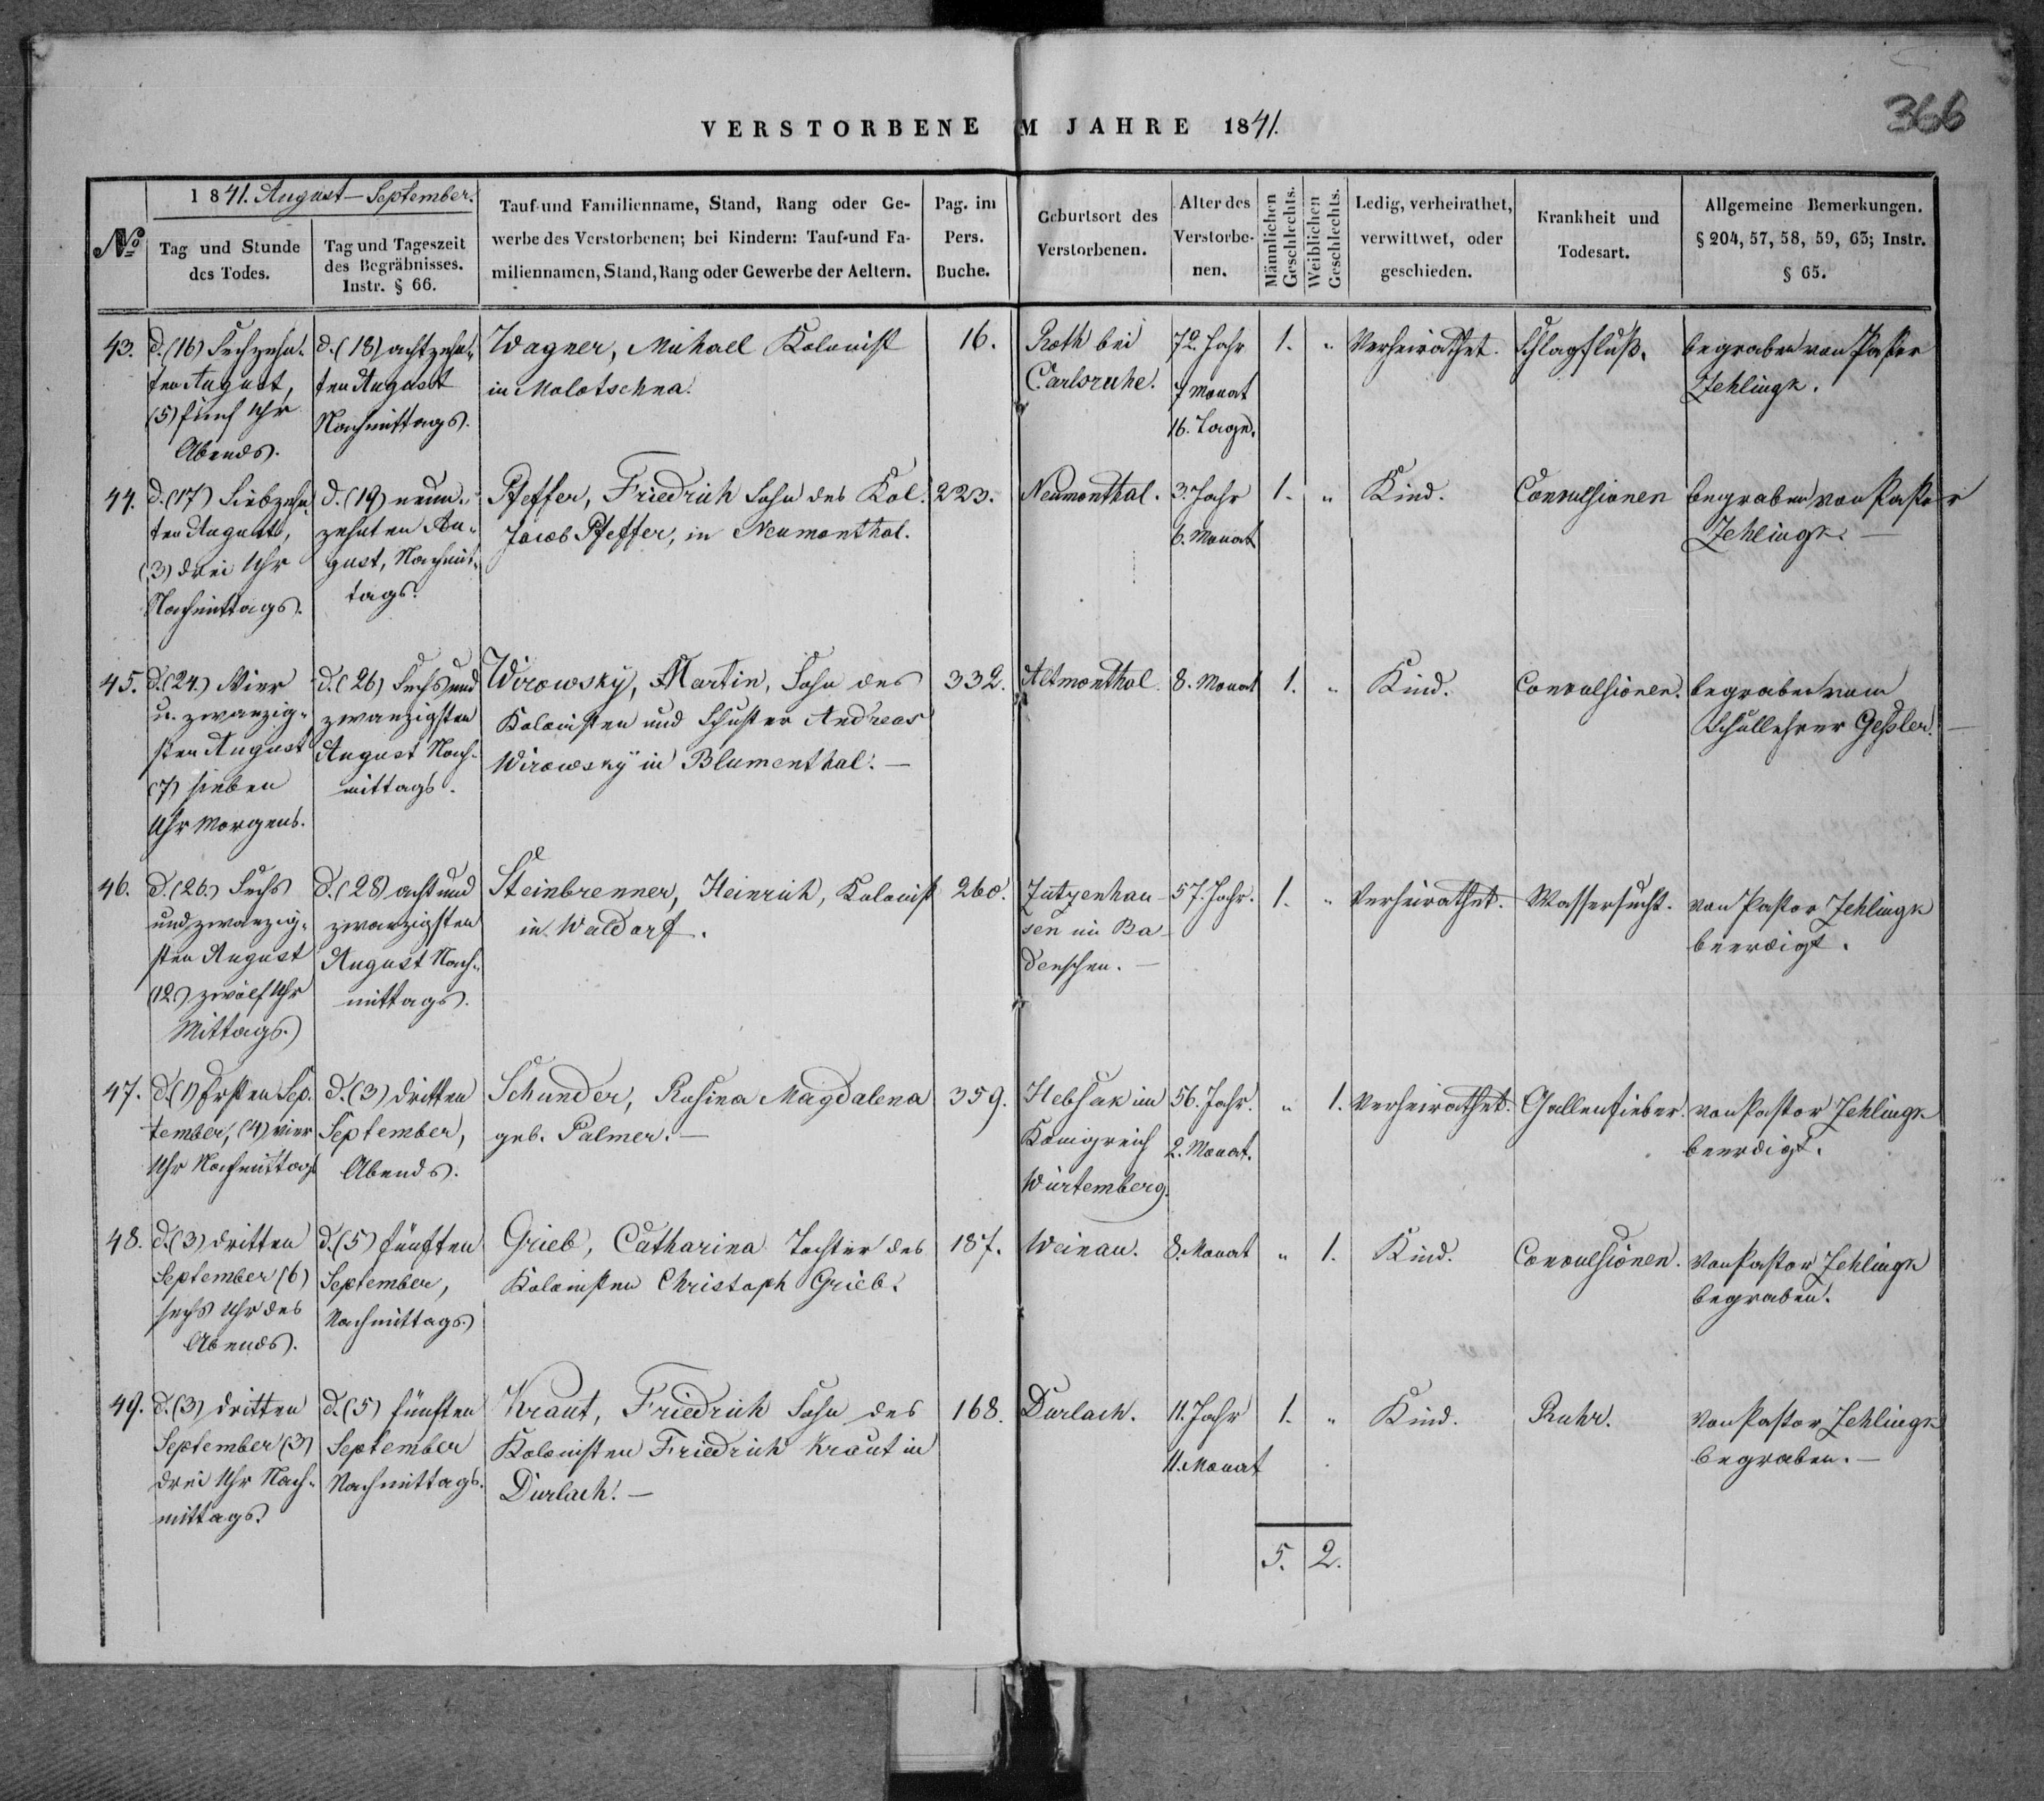 366
VERSTORBENE IM JAHRE 1841.
1841. August – September.
No
Tag und Stunde
des Todes.
Tag und Tageszeit
des Begräbnisses.
Instr. § 66.
Tauf- und Familienname, Stand, Rang oder Ge-
werbe des Verstorbenen; bei Kindern: Tauf- und Fa-
miliennamen, Stand, Rang oder Gewerbe der Aeltern.
Pag. im
Pers.
Buche.
Geburtsort des
Verstorbenen.
Alter des
Verstorbe-
nen.
Männlichen
Geschlechts.
Weiblichen
Geschlechts.
Ledig, verheirathet,
verwittwet, oder
geschieden.
Krankheit und
Todesart.
Allgemeine Bemerkungen.
§ 204, 57, 58, 59, 63; Instr.
§ 65.
43.
d. (16) Sechzehn-
ten August,
(5) fünf Uhr
Abends.
d. (18) achtzehn-
ten August
Nachmittags.
Wagner, Michael Kolonist
in Molotschna.
16.
Roth bei
Carlsruhe.
72. Jahr
7 Monat
16. Tage.
1.
"
Verheirathet.
Schlagfluß.
begraben von Pastor
Zehlingk.
44.
d. (17) Siebzehn-
ten August,
(3) drei Uhr
Nachmittags.
d. (19) neun-
zehnten Au-
gust, Nachmit-
tags.
Pfeffer, Friedrich Sohn des Kol.
Jacob Pfeffer, in Neumonthal.
223.
Neumonthal.
3. Jahr
6. Monat
1.
"
Kind.
Convulsionen
begraben von Pastor
Zehlingk. —
45.
d. (24.) Vier
u. zwanzig-
sten August
(7) sieben
Uhr Morgens.
d. (26) Sechs und
zwanzigsten
August Nach-
mittags.
Wirowsky, Martin, Sohn des
Kolonisten und Schuster Andreas
Wirowsky in Blumenthal. —
332.
Altmonthal.
8. Monat
1.
"
Kind.
Convulsionen.
begraben vom
Schullehrer Geßler. —
46.
d. (26.) Sechs
und zwanzig-
sten August
(12.) zwölf Uhr
Mittags.
d. (28) acht und
zwanzigsten
August Nach-
mittags.
Steinbrenner, Heinrich, Kolonist
in Waldorf.
260.
Jutzenhau-
sen im Ba-
denschen. —
57. Jahr.
1.
"
Verheirathet.
Wassersucht.
von Pastor Zehlingk
beerdigt.
47.
d. (1) Ersten Sep-
tember, (4) vier
Uhr Nachmittags
d. (3) dritten
September,
Abends.
Schunder, Rosina Magdalena
geb. Palmer. —
359.
Hebsak im
Königreich
Würtemberg.
56. Jahr.
2. Monat.
"
1.
Verheirathet.
Gallenfieber.
von Pastor Zehlingk
beerdigt.
48.
d. (3) dritten
September (6)
sechs Uhr des
Abends.
d. (5) fünften
September,
Nachmittags.
Grieb, Catharina Tochter des
Kolonisten Christoph Grieb.
187.
Weinau.
8. Monat
"
1.
Kind.
Convulsionen.
von Pastor Zehlingk
begraben.
49.
d. (3) dritten
September (3)
drei Uhr Nach-
mittags.
d. (5) fünften
September
Nachmittags.
Kraut, Friedrich Sohn des
Kolonisten Friedrich Kraut in
Durlach. —
168.
Durlach.
11. Jahr
11. Monat
1.
"
Kind.
Ruhr.
von Pastor Zehlingk
begraben. —
5.
2.